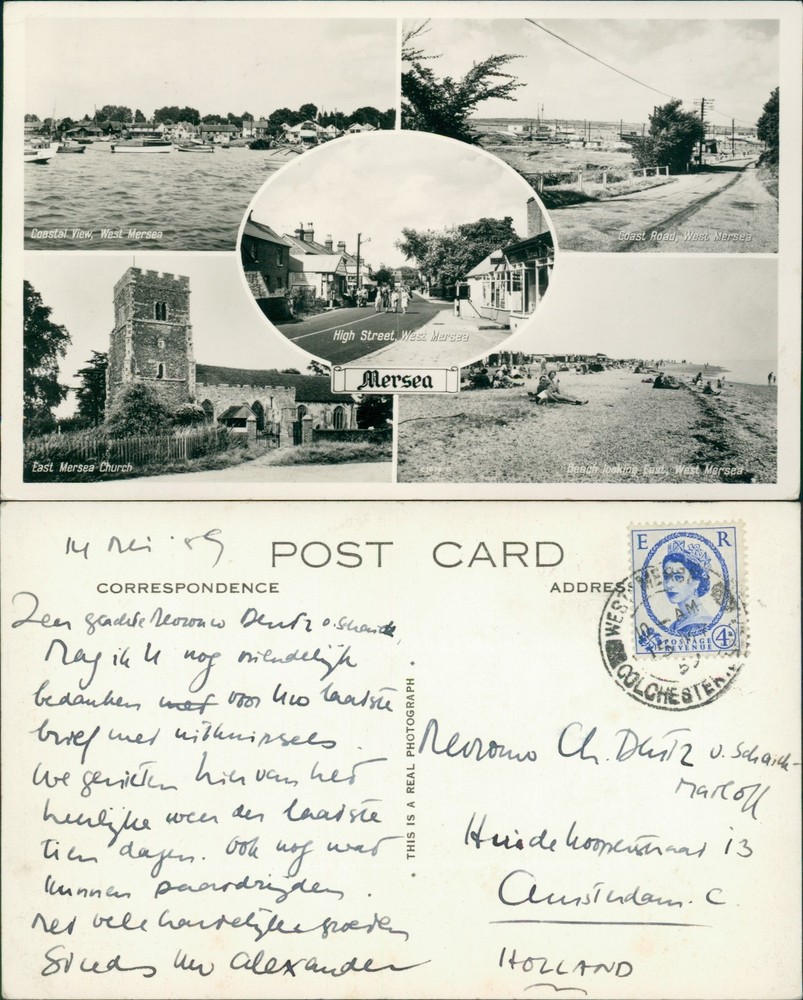 Coastal View, West Mersea
Coast Road, West Mersea
High Street, West Mersea
Mersea
East Mersea Church
Beach looking East, West Mersea
14 Mei '59
POST CARD
CORRESPONDENCE
ADDRESS
E R
POSTAGE
REVENUE
4D
WEST MERSEA
AM
59
COLCHESTER
Zeer geachte Mevrouw Dentz v. Schaick,
Mag ik U nog vriendelijk
bedanken voor Uw laatste
brief met uitknipsels.
We genieten hier van het
heerlijke weer der laatste
tien dagen. Ook nog wat
kunnen paardrijden.
Met vele hartelijke groeten
Steeds Uw Alexander
THIS IS A REAL PHOTOGRAPH
Mevrouw Ch. Dentz v. Schaick-
Marloff
Huidekooperstraat 13
Amsterdam. C.
HOLLAND